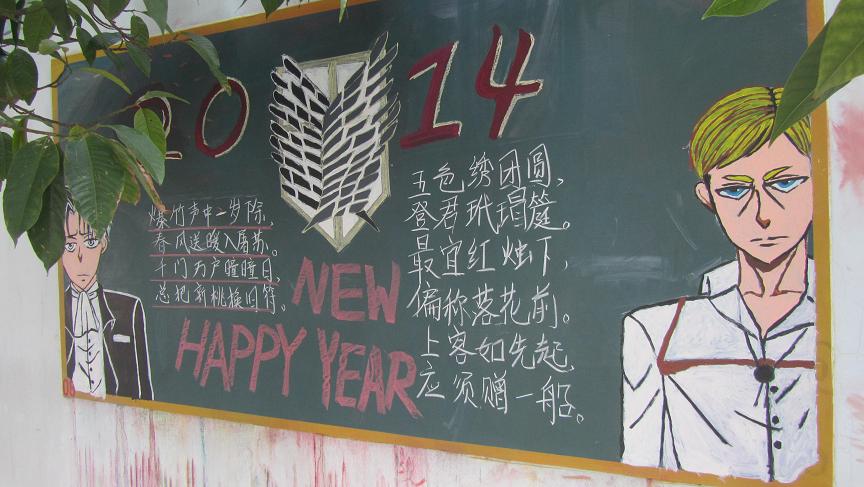 2014
爆竹声中一岁除,
春风送暖入屠苏。
千门万户曈曈日,
总把新桃换旧符。
NEW
HAPPY YEAR
五色绣团圆,
登君玳瑁筵。
最宜红烛下,
偏称落花前。
上客如先起,
应须赠一船。